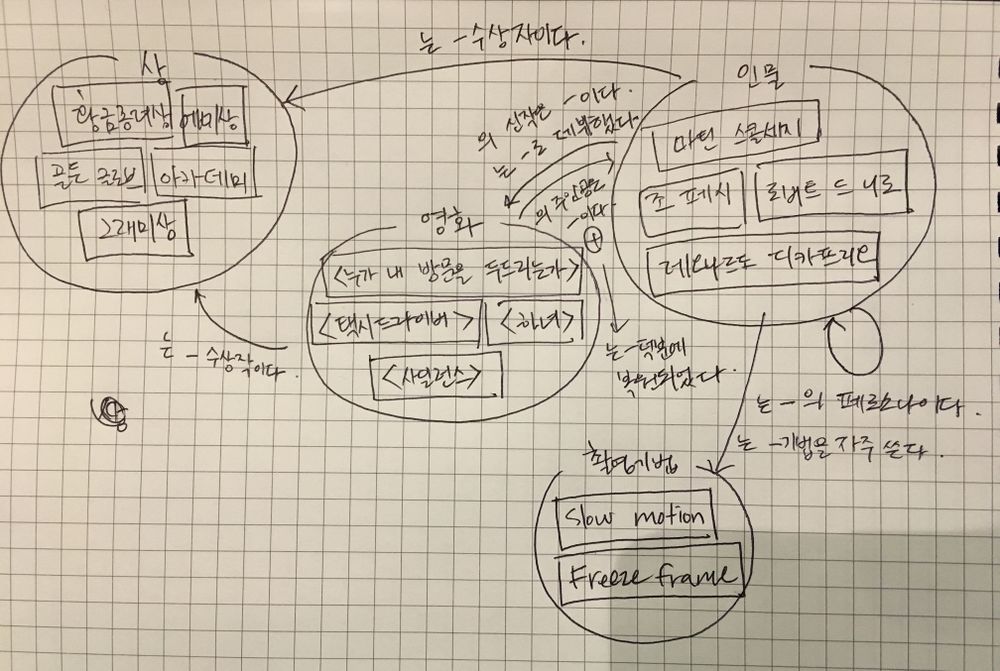 는 - 수상자이다.
상
황금종려상 에미상
골든 글로브 아카데미
그래미상
인물
마틴 스콜세지
조 페시 로버트 드 니로
레오나르도 디카프리오
의 신작은 - 이다.
는 - 로 데뷔했다.
의 주인공은
- 이다
영화
<누가 내 방문을 두드리는가>
<택시드라이버> <하녀>
<사일런스>
는 - 수상작이다.
는 - 덕분에
복원되었다.
는 - 의 페르소나이다.
는 - 기법을 자주 쓴다.
촬영기법
Slow motion
Freeze frame